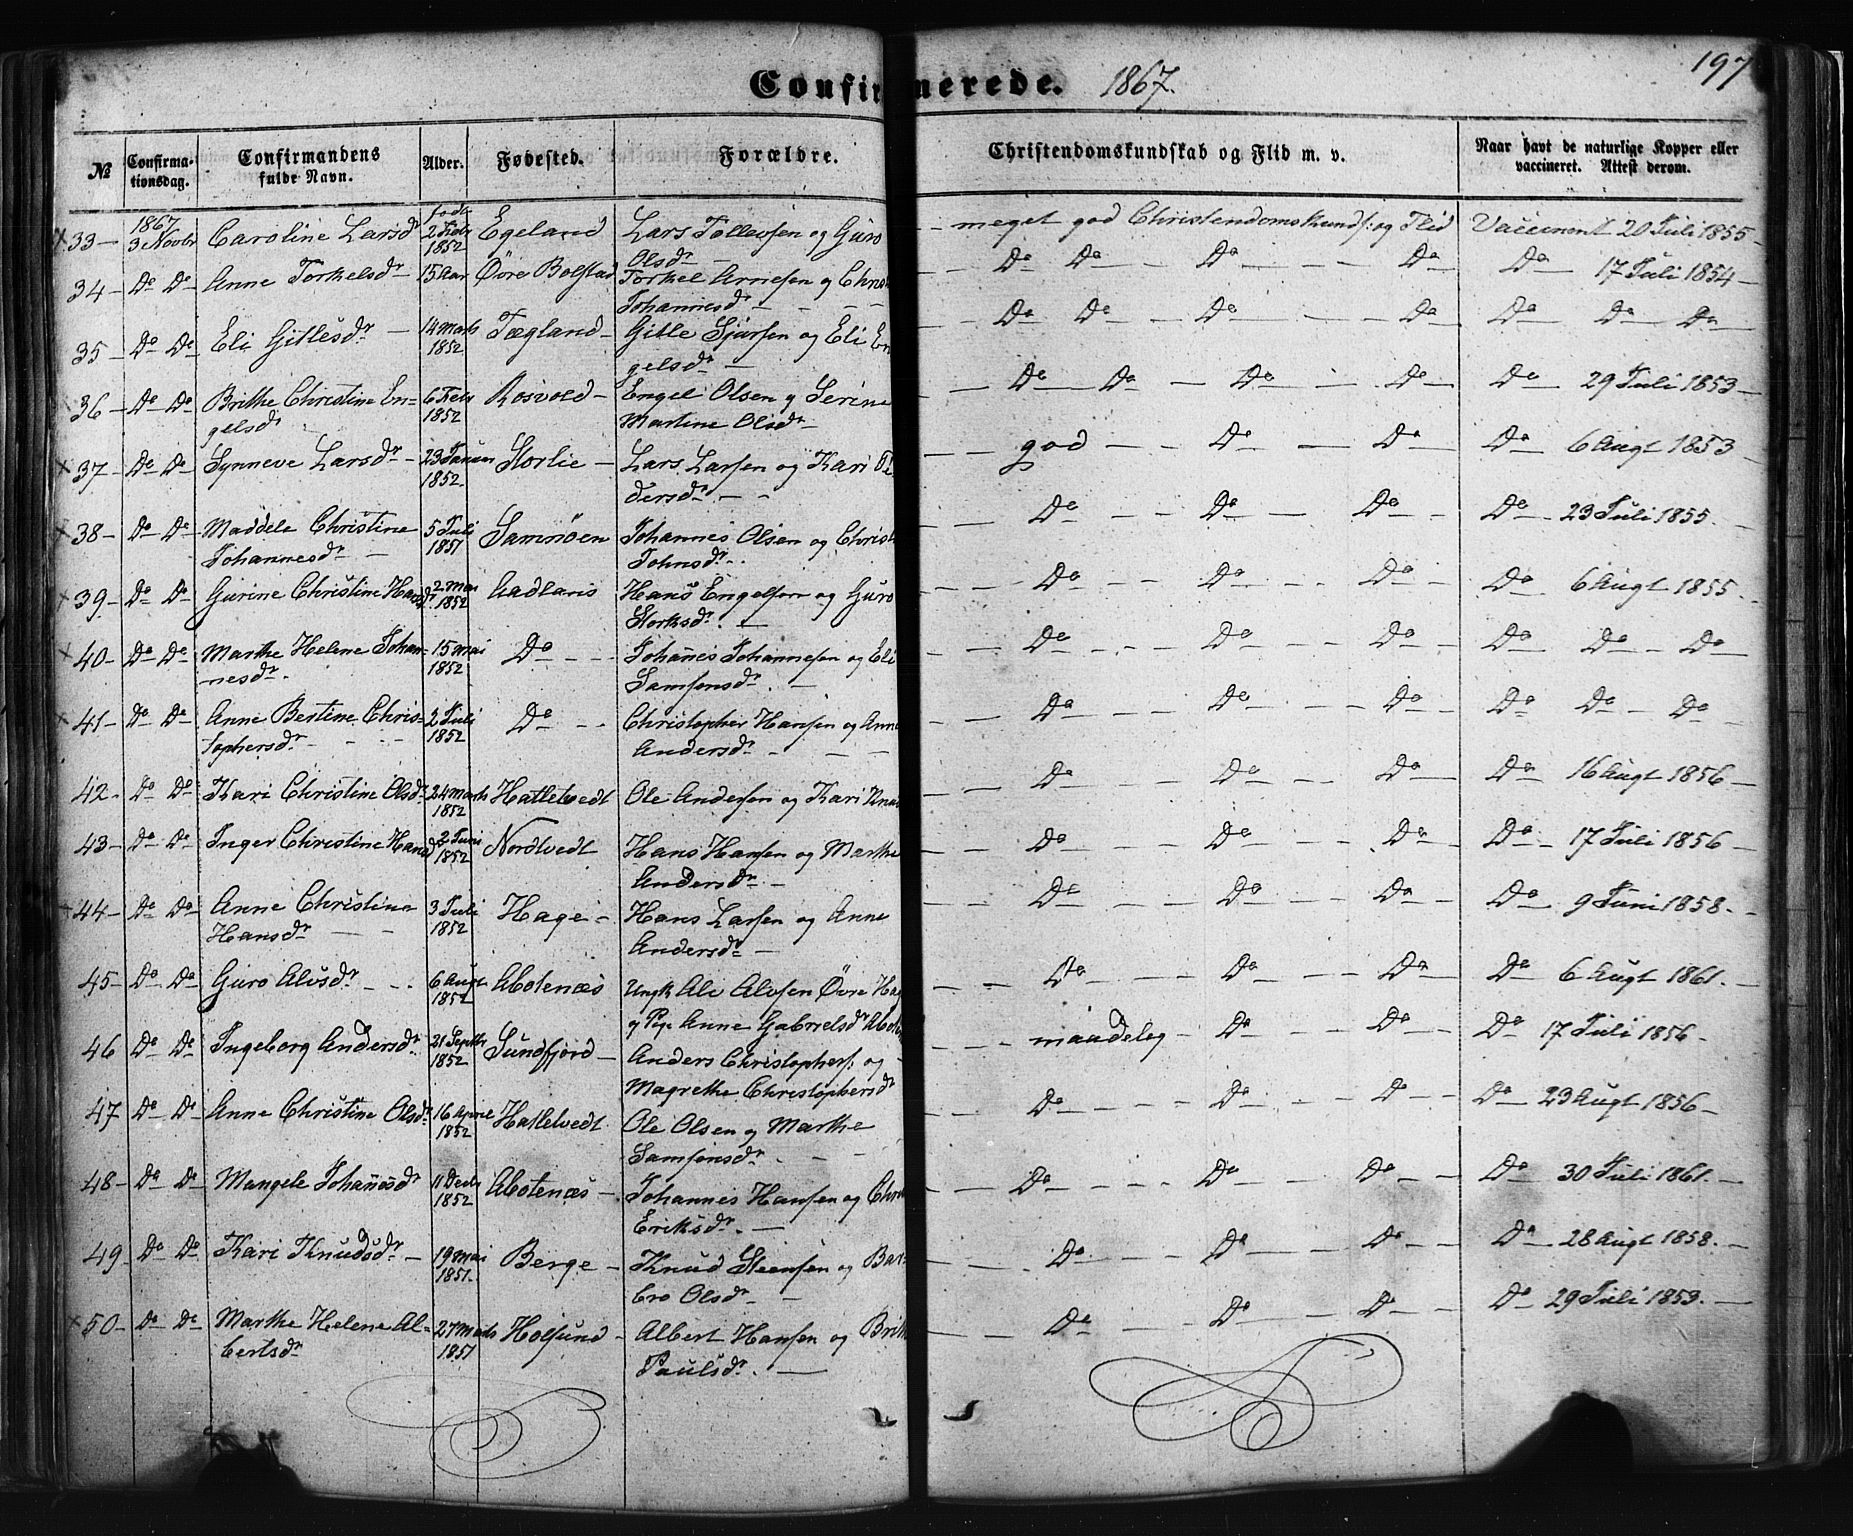 Confirmerede. 1867. 197
№ Confirmationsdag. Confirmandens fulde Navn. Alder. Fødested. Forældre. Christendomskundskab og Flid m. v. Naar havt de naturlige Kopper eller vaccineret. Attest derom.
x 33 – 1867 3 Novbr Caroline Larsdr født 2 Febr 1852 Egeland Lars Tollevsen og Guro Olsdr – meget god Christendomskunds: og Flid Vaccineret 20 Juli 1855 –
34 – Do Do Anne Torkelsdr – 15 Aar Øvre Bolstad Torkel Arnesen og Johannesdr – – Do Do – Do – Do – Do – 17 Juli 1854 –
35 – Do Do Eli Gitlesdr – 14 Marts 1852 Tægland – Gitle Sjursen og Eli Engelsdr – Do Do – Do – Do – Do Do Do
36 – Do Do Brithe Christine Engelsdr 6 Febr 1852 Rosvold – Engel Olsen og Serine Martine Olsdr – Do – Do – Do – Do – Do – 29 Juli 1853 –
x 37 – Do Do Synneve Larsdr – 23 Januar 1852. Storlie – Lars Larsen og Kari Pedersdr – – god – – Do – Do – Do – 6 Augt 1853 –
x 38 – Do Do Maddele Christine Johannesdr – 5 Juli 1851 Samnøen Johannes Olsen og Johnsdr. – Do – – Do – Do – Do – 23 Juli 1855. –
x 39 – Do Do Gurine Christine Hansdr 2 Mai 1852 Aadlaris Hans Engelsen og Guro Storksdr. – Do – – Do – – Do – Do – 6 Augt 1855.
x 40 – Do Do Marthe Helene Johannesdr. 15 Mai 1852 Do – – – Johannes Johannesen og Eli Samsonsdr. – Do – – Do – – Do – Do – Do – Do
x 41 – Do Do Anne Bertine Christophersdr – – – 2 Juli 1852 Do – – Christopher Hansen og Anne Andersdr – – – Do – – Do – – Do – Do – Do – Do
42 – Do Do Kari Christine Olsdr 24 Marts 1852 Hatletvedt Ole Andersen og Kari Do – – Do – – Do – Do – 16 Augt 1856 –
43 – Do Do Inger Christine Hansdr 2 Juni 1852 Nordtvedt Hans Hansen og Marthe Andersdr. – Do – – Do – – Do – Do – 17 Juli 1856 –
44 – Do Do Anne Christine Hansdr – – 3 Juli 1852 Hage – Hans Larsen og Anne Andersdr – Do – – Do – – Do – Do – 9 Juni 1858. –
45 – Do Do Guro Alvsdr – – – 6 Augt 1852 Abotenæs Ungk Alv Alvsen Øvre og Pige Anne Gabrielsdr Do – – Do – – Do – Do – 6 Augt 1861. –
46 Do Do Ingeborg Andersdr. 21 Septbr 1852 Sundfjord – Anders Christophers: og Magrethe Christophersdr maadeleg – Do – – Do – – Do – 17 Juli 1856. –
47 Do Do Anne Christine Olsdr. 16 April 1852 Hatletvedt Ole Olsen og Marthe Samsonsdr – – – Do – – Do – – Do – Do – 23 Augt 1856 –
48 – Do Do Mangele Johannesdr 11 Decbr 1852 Abotenæs – Johannes Hansen og Eriksdr. – Do – – Do – – Do – – Do – 30 Juli 1861. –
49 – Do Do Kari Knudsdr. – 19 Mai 1851. Berge – Knud Steensen og Barbro Olsdr – – Do – – Do – – Do – – Do – 28 Augt 1858. –
x 50 – Do Do Marthe Helene Albertsdr 27 Marts 1851 Holsund – Albert Hansen og Paulsdr. – Do – – Do – – Do – – Do – 29 Juli 1853. –